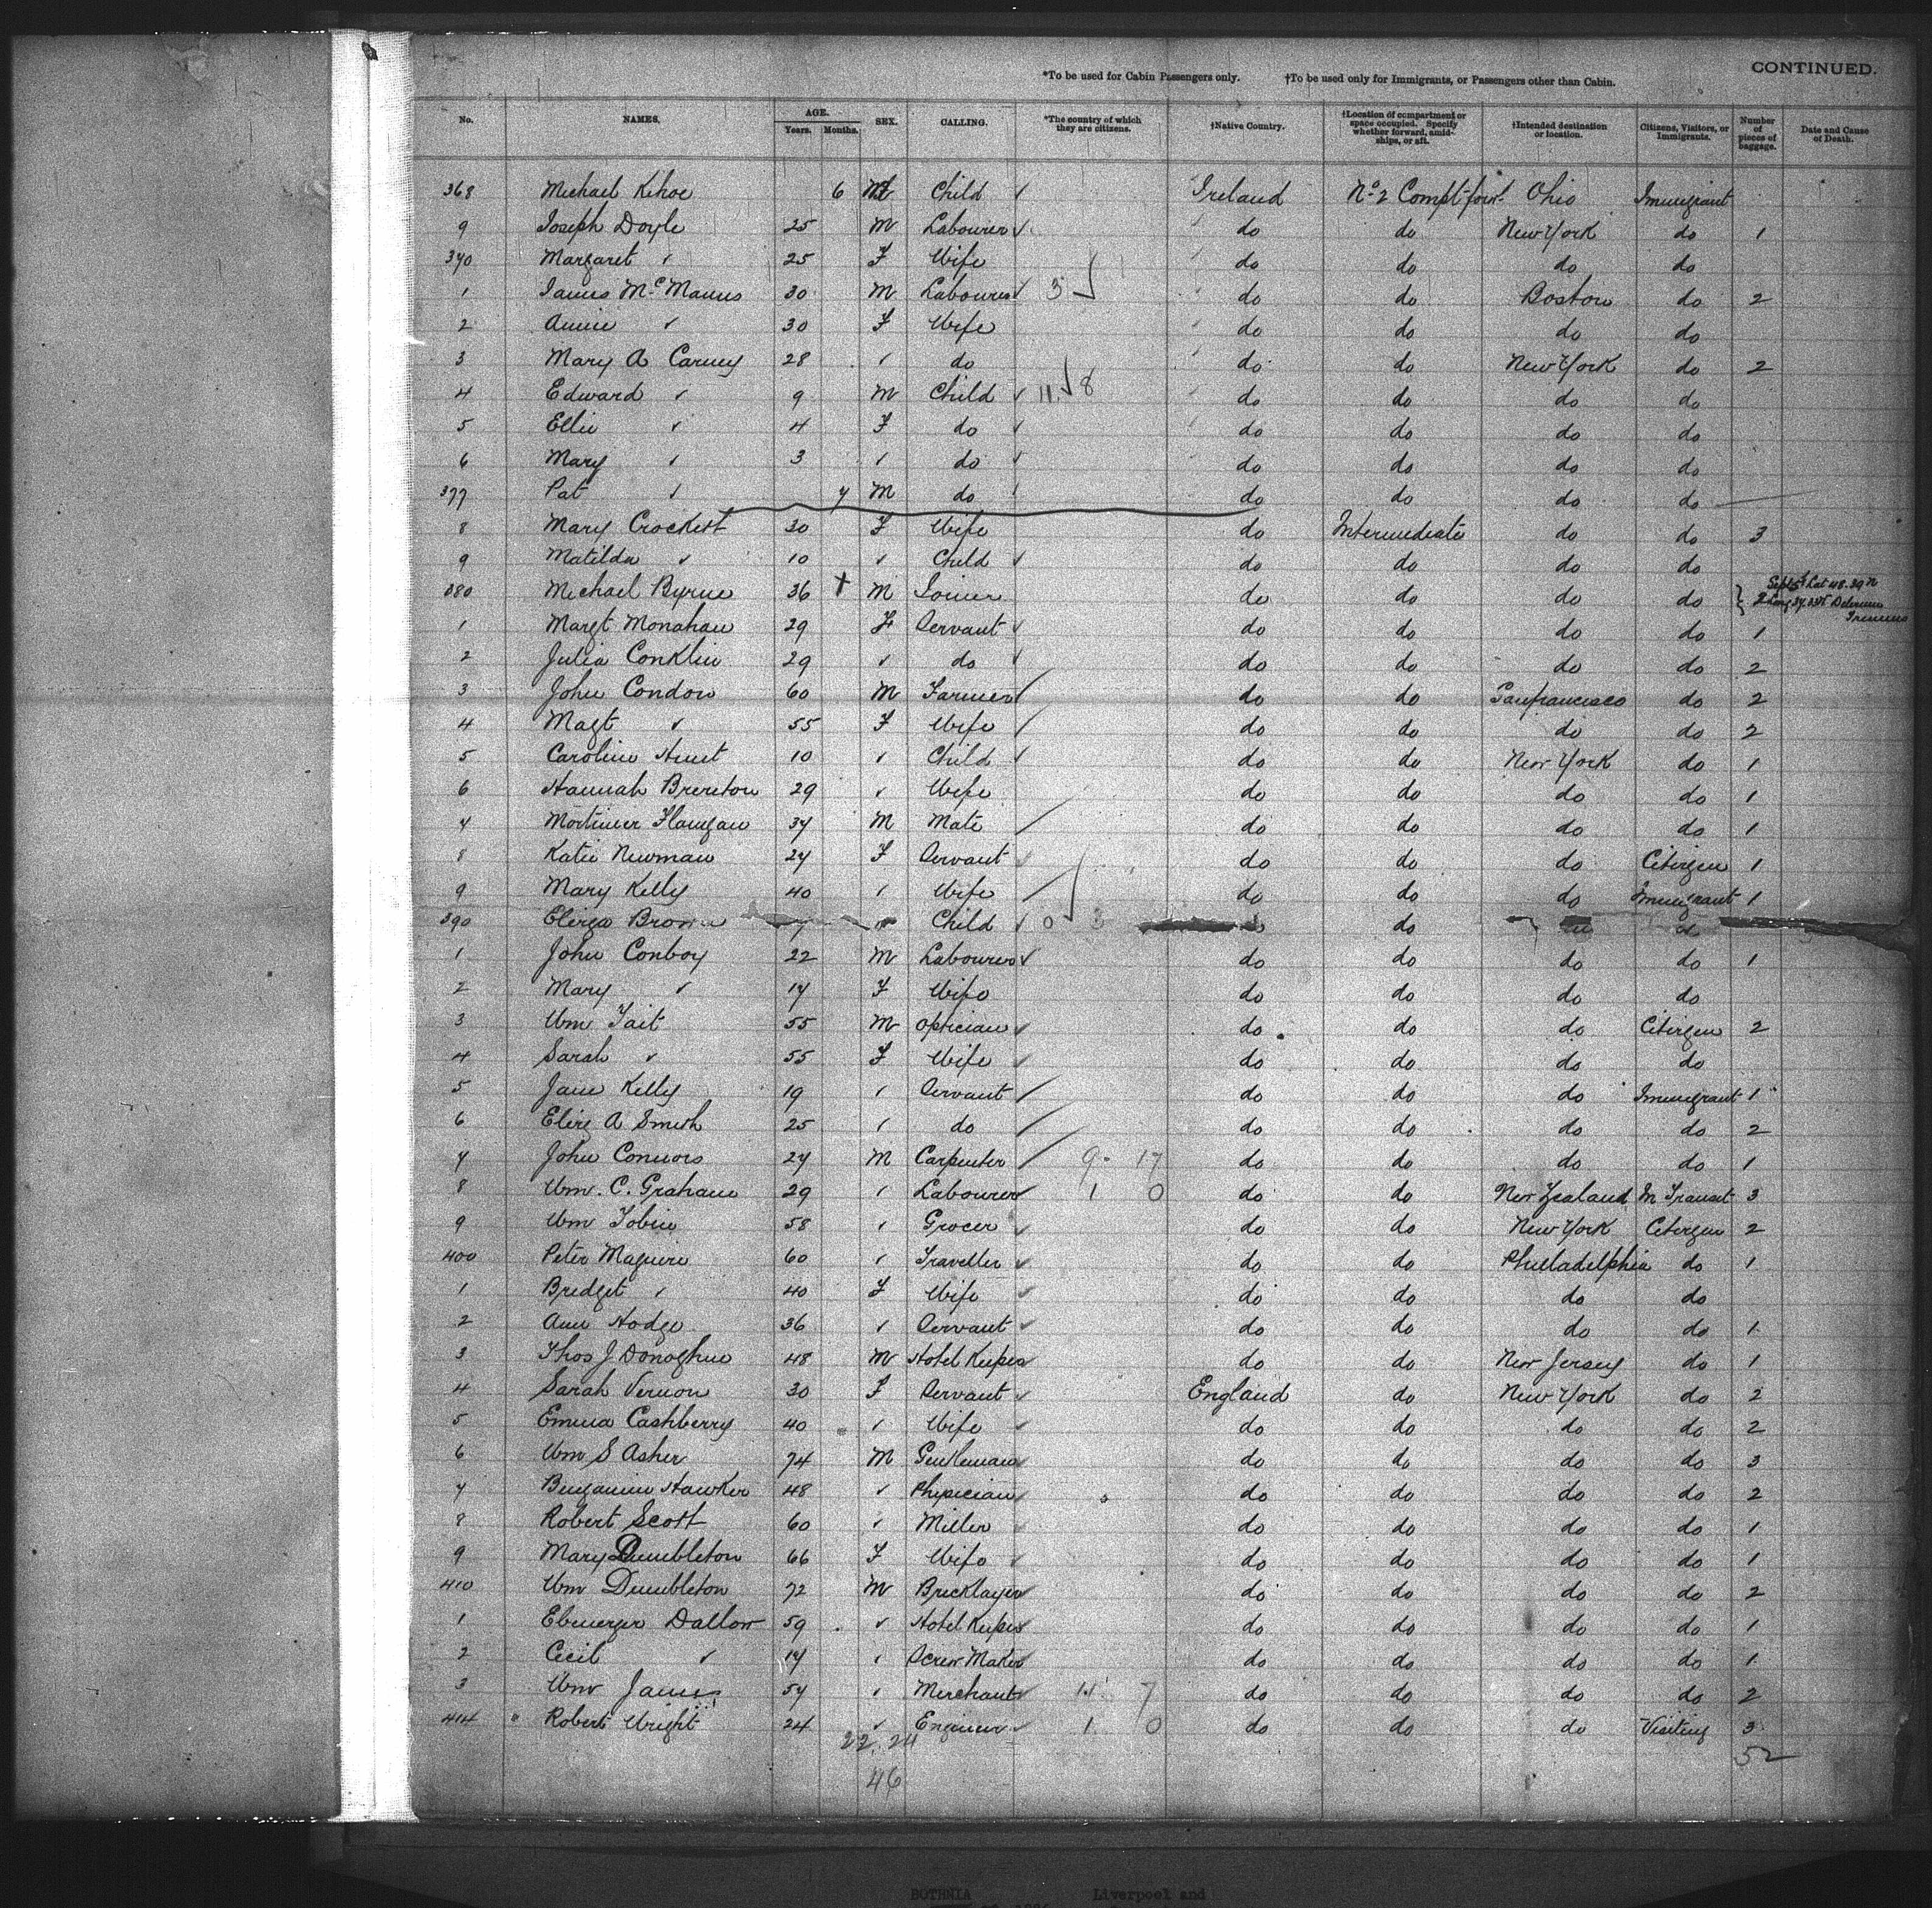 CONTINUED.
*To be used for Cabin Passengers only. †To be used only for Immigrants, or Passengers other than Cabin.
No. NAMES. AGE. Years. Months. SEX. CALLING. *The country of which they are citizens. †Native Country. †Location of compartment or space occupied. Specify whether forward, amidships, or aft. †Intended destination or location. Citizens, Visitors, or Immigrants. Number of pieces of baggage. Date and Cause of Death.
368 Michael Kehoe 6 M Child ✓ Ireland No 2 Compt forw. Ohio Immigrant
9 Joseph Doyle 25 M Labourer ✓ do do New York do 1
370 Margaret " 25 F Wife do do do do
1 James McManus 30 M Labourer ✓ 3 do do Boston do 2
2 Annie " 30 F Wife do do do do
3 Mary A Carney 28 " do do do New York do 2
4 Edward " 9 M Child ✓ 11 8 do do do do
5 Ellie " 4 F do ✓ do do do do
6 Mary " 3 " do ✓ do do do do
377 Pat " 7 M do do do do do
8 Mary Crockett 30 F Wife do Intermediate do do 3
9 Matilda " 10 " Child ✓ do do do do
380 Michael Byrne 36 † M Joiner do do do do 2 Sept 5 Lat 48.39 N Long 37. Delirium Tremens
1 Margt Monahan 29 F Servant ✓ do do do do 1
2 Julia Conklin 29 " do ✓ do do do do 2
3 John Condon 60 M Farmer do do Sanfrancisco do 2
4 Magt " 55 F Wife do do do do 2
5 Caroline Hunt 10 " Child ✓ do do New York do 1
6 Hannah Brereton 29 " Wife do do do do 1
7 Mortimer Flanigan 37 M Mate do do do do 1
8 Katie Newman 27 F Servant do do do Citizen 1
9 Mary Kelly 40 " Wife do do do Immigrant 1
390 Eliza Brown Child ✓ 0 3 do
1 John Conboy 22 M Labourer ✓ do do do do 1
2 Mary " 17 F Wife do do do do
3 Wm Tait 55 M Optician ✓ do do do Citizen 2
4 Sarah " 55 F Wife ✓ do do do do
5 Jane Kelly 19 " Servant do do do Immigrant 1
6 Eliz A Smith 25 " do do do do do 2
7 John Connors 27 M Carpenter 9 17 do do do do 1
8 Wm. C. Graham 29 " Labourer 1 0 do do New Zealand In Transit 3
9 Wm Tobin 58 " Grocer ✓ do do New York Citizen 2
400 Peter Maguire 60 " Traveller ✓ do do Philadelphia do 1
1 Bridget " 40 F Wife ✓ do do do do
2 Ann Hodge 36 " Servant ✓ do do do do 1
3 Thos J Donoghue 48 M Hotel Keeper do do New Jersey do 1
4 Sarah Vernon 30 F Servant ✓ England do New York do 2
5 Emma Cashberry 40 " Wife ✓ do do do do 2
6 Wm S Asher 74 M Gentleman do do do do 3
7 Benjamin Hawker 48 " Physician do do do do 2
8 Robert Scott 60 " Miller do do do do 1
9 Mary Dumbleton 66 F Wife ✓ do do do do 1
410 Wm Dumbleton 72 M Bricklayer do do do do 2
1 Ebenezer Dallow 59 " Hotel Keeper do do do do 1
2 Cecil " 17 " Screw Maker do do do do 1
3 Wm James 57 " Merchant 11 7 do do do do 2
414 Robert Wright 24 " Engineer ✓ 1 0 do do do Visiting 3
22. 24
52
46
BOTHNIA Liverpool and